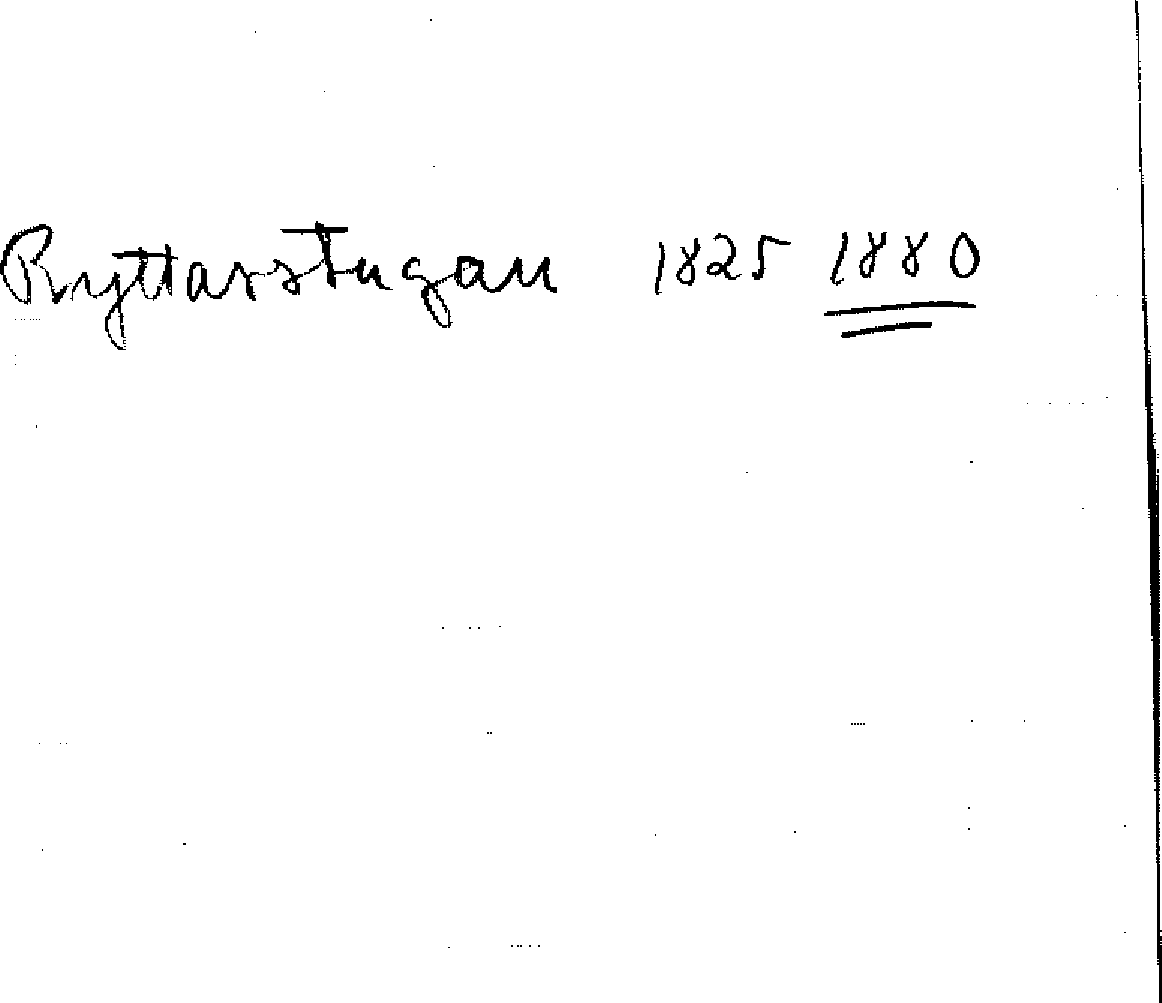 Ryttarstugan 1825 1880